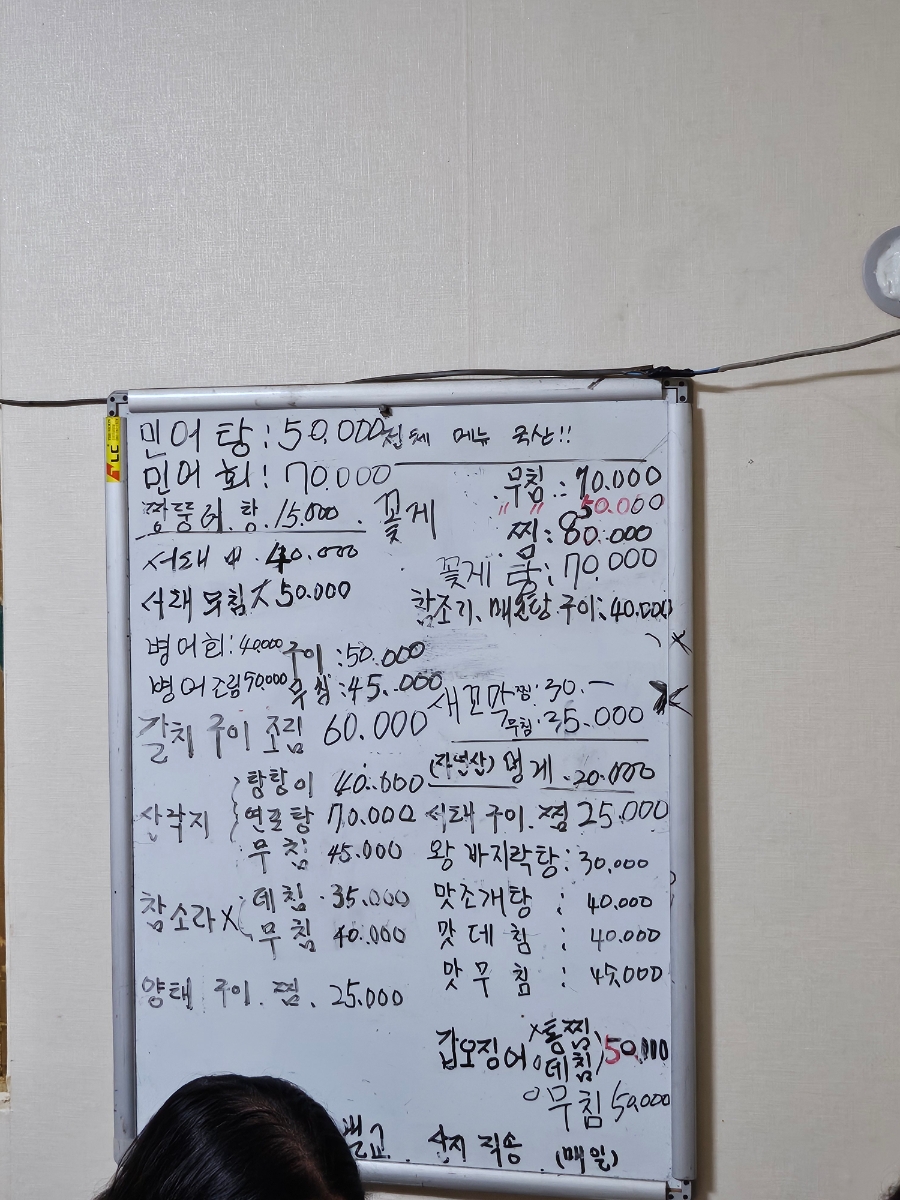 민어탕: 50.000 전체 메뉴 국산!!
민어회: 70.000
짱뚱어.탕.15.000.
꽃게 무침: 70.000
" " 50.000
찜: 80.000
서대 40.000
꽃게 탕: 70.000
서대 무침 X 50.000
참조기, 매운탕 구이: 40.000
X
병어회: 40.000 구이: 50.000
병어조림 50.000 무침: 45.000
새꼬막 찜: 30.-
무침: 35.000
갈치 구이 조림 60.000
(자연산) 멍게 .20.000
산낙지 탕탕이 40.000
연포탕 70.000
무침 45.000
서대 구이.찜 25.000
왕 바지락탕: 30.000
참소라 X 데침 .35.000
무침 40.000
맛조개탕 : 40.000
맛데침 : 40.000
맛무침 : 45.000
양태 구이.찜. 25.000
갑오징어 X통찜 O데침 50.000
O무침 50.000
벌교 산지 직송 (매일)